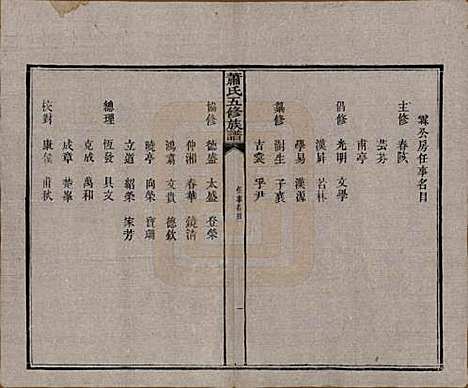 霖公房任事名目
主修 春陔
芸芬
甫亭
倡修 光明 文學
漢昇 若林
學易 漢源
纂修 樹生 子襄
吉裳 孚尹
蕭氏五修族譜
任事名目 一
協修 德盛 太盛 卷榮
仲湘 春華 鏡清
鴻嘉 文貴 德欽
曉亭 向榮 寶珊
立道 紹榮 家芳
總理 恆發 具文
克成 萬和
成章 楚峯
校對 康侯 甫秋